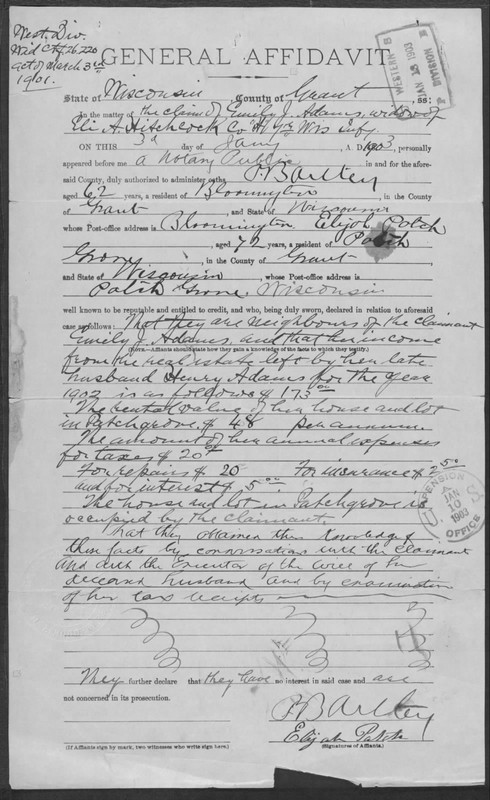 West. Div.
Wid Ctf. 26,220
act of March 3rd
1901.
WESTERN
JAN 13 1903
DIVISION
GENERAL AFFIDAVIT
State of Wisconsin County of Grant ss:
In the matter of the claim of Emily J. Adams, widow of
Eli A. Hitchcock Co H, Wis Infy
ON THIS 3d day of Jany, A. D. 1903, personally
appeared before me a Notary Public in and for the afore-
said County, duly authorized to administer oaths,
aged 62 years, a resident of Bloomington, in the County
of Grant, and State of Wisconsin
whose Post-office address is Bloomington Elijah Patch
, aged 72 years, a resident of Patch
Grove, in the County of Grant
and State of Wisconsin, whose Post-office address is
Patch Grove, Wisconsin
well known to be reputable and entitled to credit, and who, being duly sworn, declared in relation to aforesaid
case as follows: That they are neighbours of the claimant
Emily J. Adams, and that her income
(NOTE.—Affiants should state how they gain a knowledge of the facts to which they testify.)
from the real estate left by her late
husband Henry Adams for the year
1902 is as follows $ 173.00
The rental value of her house and lot
in Patchgrove $ 48 per annum.
The amount of her annual expenses
for taxes $ 20
For repairs $ 25 For insurance $ 2.50
and for interest $ 5.00
The house and lot in Patchgrove is
occupied by the claimant.
That they obtained their knowledge of
these facts by conversations with the claimant
and with the Executor of the will of her
deceased husband and by examination
of her tax receipts
U. S. PENSION OFFICE
JAN 10 1903
They further declare that they have no interest in said case and are
not concerned in its prosecution.
Elijah Patch
(If Affiants sign by mark, two witnesses who write sign here.)
(Signatures of Affiants.)